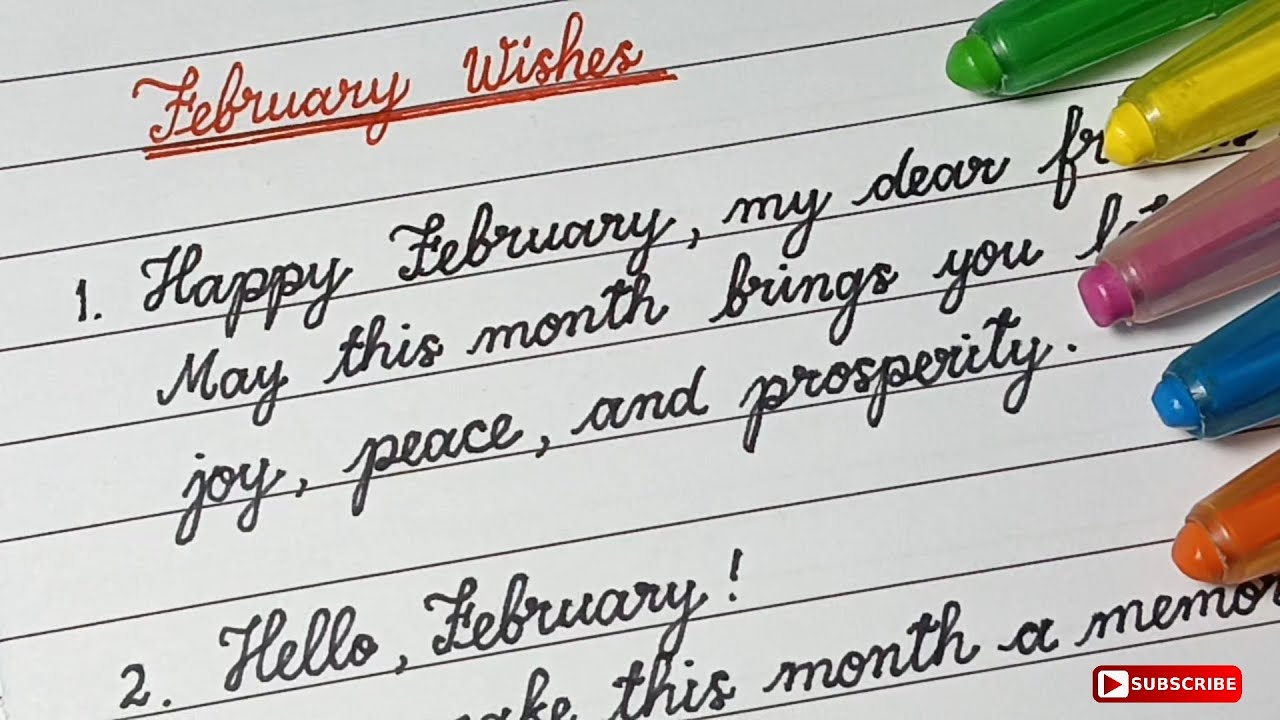 February Wishes
1. Happy February, my dear
May this month brings you
joy, peace, and prosperity.
2. Hello, February!
this month a
SUBSCRIBE